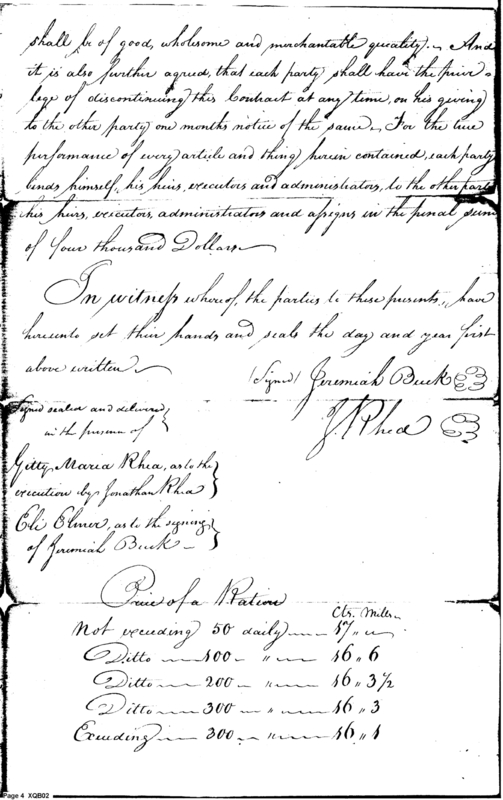 shall be of good, wholesome and merchantable quality. And
it is also further agreed, that each party shall have the privi=
lege of discontinuing this Contract at any time, on his giving
to the other party one months notice of the same. For the true
performance of every article and thing herein contained, each party
binds himself, his heirs, executors and administrators, to the other party
his heirs, executors, administrators and assigns in the penal sum
of four thousand Dollars
In witness whereof, the parties to these presents, have
hereunto set their hands and seals the day and year first
above written
(Signed) Jeremiah Buck
J. Rhea
Signed sealed and delivered
in the presence of
Gitty Maria Rhea, as to the
execution by Jonathan Rhea
Eli Elmer, as to the signing
of Jeremiah Buck
Price of a Ration
Cts. Mills
Not exceeding 50 daily 17 "
Ditto 100 " 16 " 6
Ditto 200 " 16 " 3½
Ditto 300 " 16 " 3
Exceeding 300 " 16 " 1
Page 4 XQB02